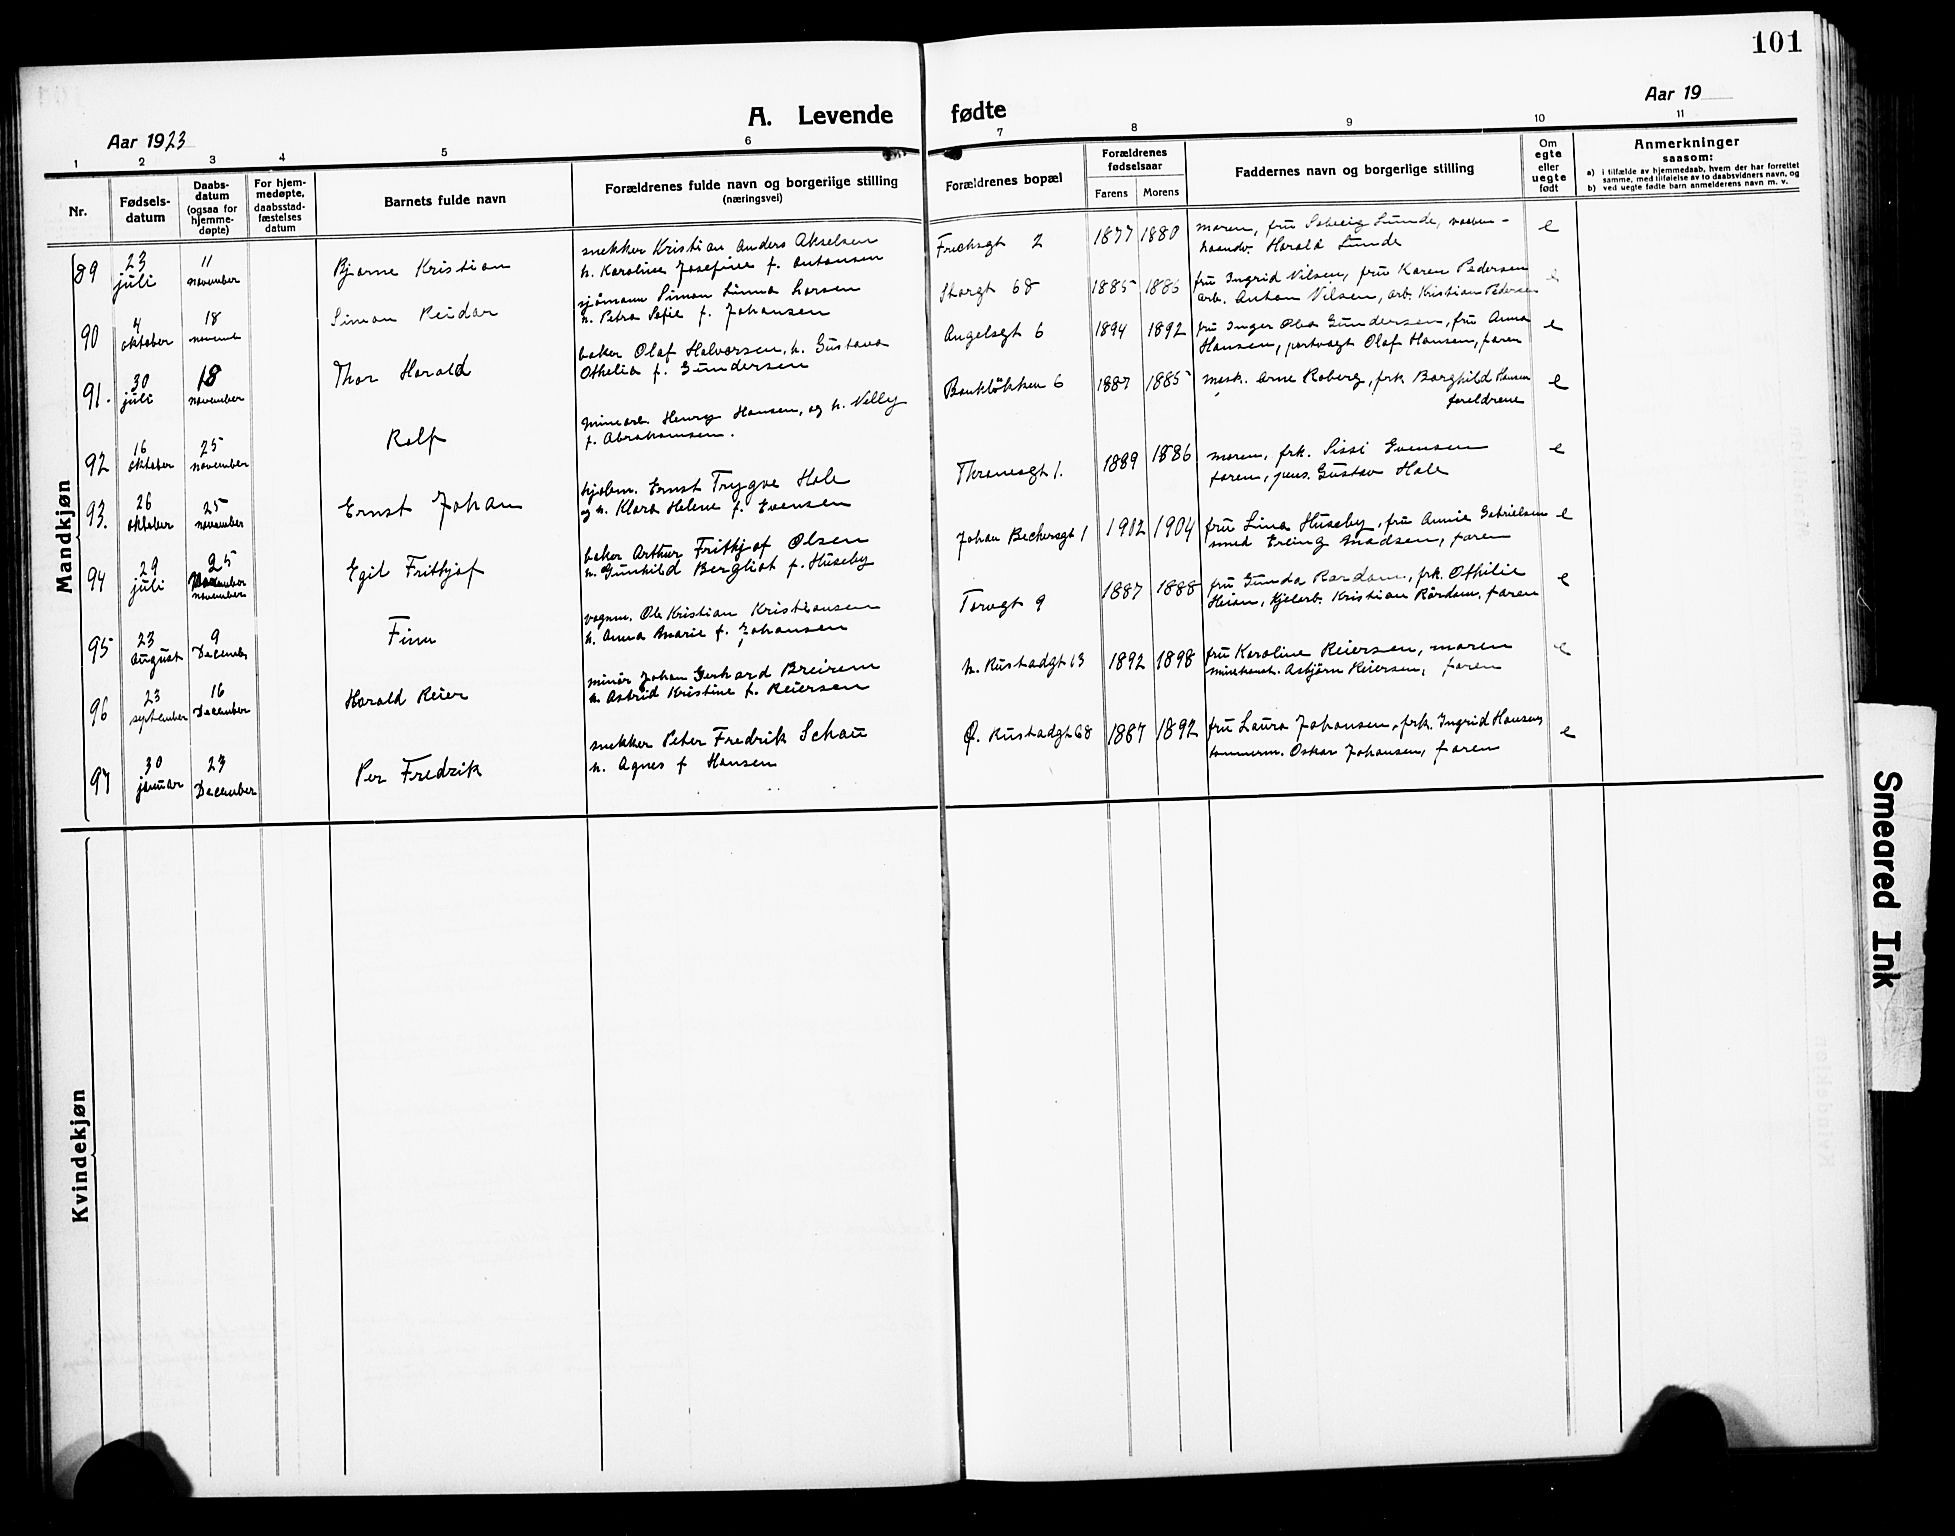 101
A. Levende fødte
Aar 1923
Aar 19
1 2 3 4 5 6 7 8 9 10 11
Nr.
Fødsels-
datum
Daabs-
datum
(ogsaa for
hjemme-
døpte)
For hjem-
medøpte,
daabsstad-
fæstelses
datum
Barnets fulde navn
Forældrenes fulde navn og borgerlige stilling
(næringsvei)
Forældrenes bopæl
Forældrenes
fødselsaar
Farens Morens
Faddernes navn og borgerlige stilling
Om
egte
eller
uegte
født
Anmerkninger
saasom:
a) i tilfælde av hjemmedaab, hvem der har forrettet
samme, med tilføielse av to daabsvidners navn, og
b) ved uegte fødte barn anmelderens navn m. v.
Mandkjøn
89 23 juli 11 november
Bjarne Kristian
snekker Kristian Anders Akselsen
h. Karoline Josefine f. Antonsen
Frichsgt 2 1877 1880
moren, fru Solveig Lunde,
Harald Lunde
e
90 4 oktober 18
Simon Reidar
sjömann Simon Larsen
h. Petra Sofie f. Johansen
Storgt 68 1885 1886
fru Ingrid Nilsen, fru Karen Pedersen
arb. Anton Nilsen, arb. Kristian Pedersen
e
91. 30 juli 18 november
Thor Harald
baker Olaf Halvorsen, h. Gustava
Othelia f. Gundersen
Angelsgt 6 1894 1892
fru Inger Gundersen, fru Anna
Hansen, portvagt Olaf Hansen, faren
e
92 16 oktober 25 november
Rolf
Henry Hansen, og h. Nelly
f. Abrahamsen.
Bankløkken 6 1887 1885
mask. Arne Roberg, frk Borghild Hansen
foreldrene
e
93. 26 oktober 25 november
Ernst Johan
Ernst Trygve Hole
og h. Klara Helene f. Evensen
Thranesgt 1. 1889 1886
moren, frk. Sissi Evensen
faren, pens. Gustav Hole
e
94 29 juli 25 november
Egil Fritjof
baker Arthur Fritjof Olsen
h. Gunhild Bergliot f. Huseby
Johan Beckersgt 1 1902 1904
fru Lina Huseby, fru Annie Gabrielsen
smed Erling Madsen, faren
e
95 23 august 9 December
Finn
vognm. Ole Kristian Kristiansen
h. Anna Marie f. Johansen
Torvgt 9 1887 1888
fru Gunda Rørdam, frk. Othilie
Kristian Rørdam, faren
e
96 23 september 16 December
Harald Reier
minör Johan Gerhard Breirem
h. Astrid Kristine f. Reiersen
N. Rustadgt 13 1892 1898
fru Karoline Reiersen, moren
Asbjørn Reiersen, faren
e
97 30 januar 23 December
Per Fredrik
snekker Peter Fredrik Schau
h. Agnes f Hansen
Ø. Rustadgt 68 1887 1892
fru Laura Johansen, frk. Ingrid Hansen
tømmerm. Oskar Johansen, faren
e
Kvindekjøn
Smeared Ink